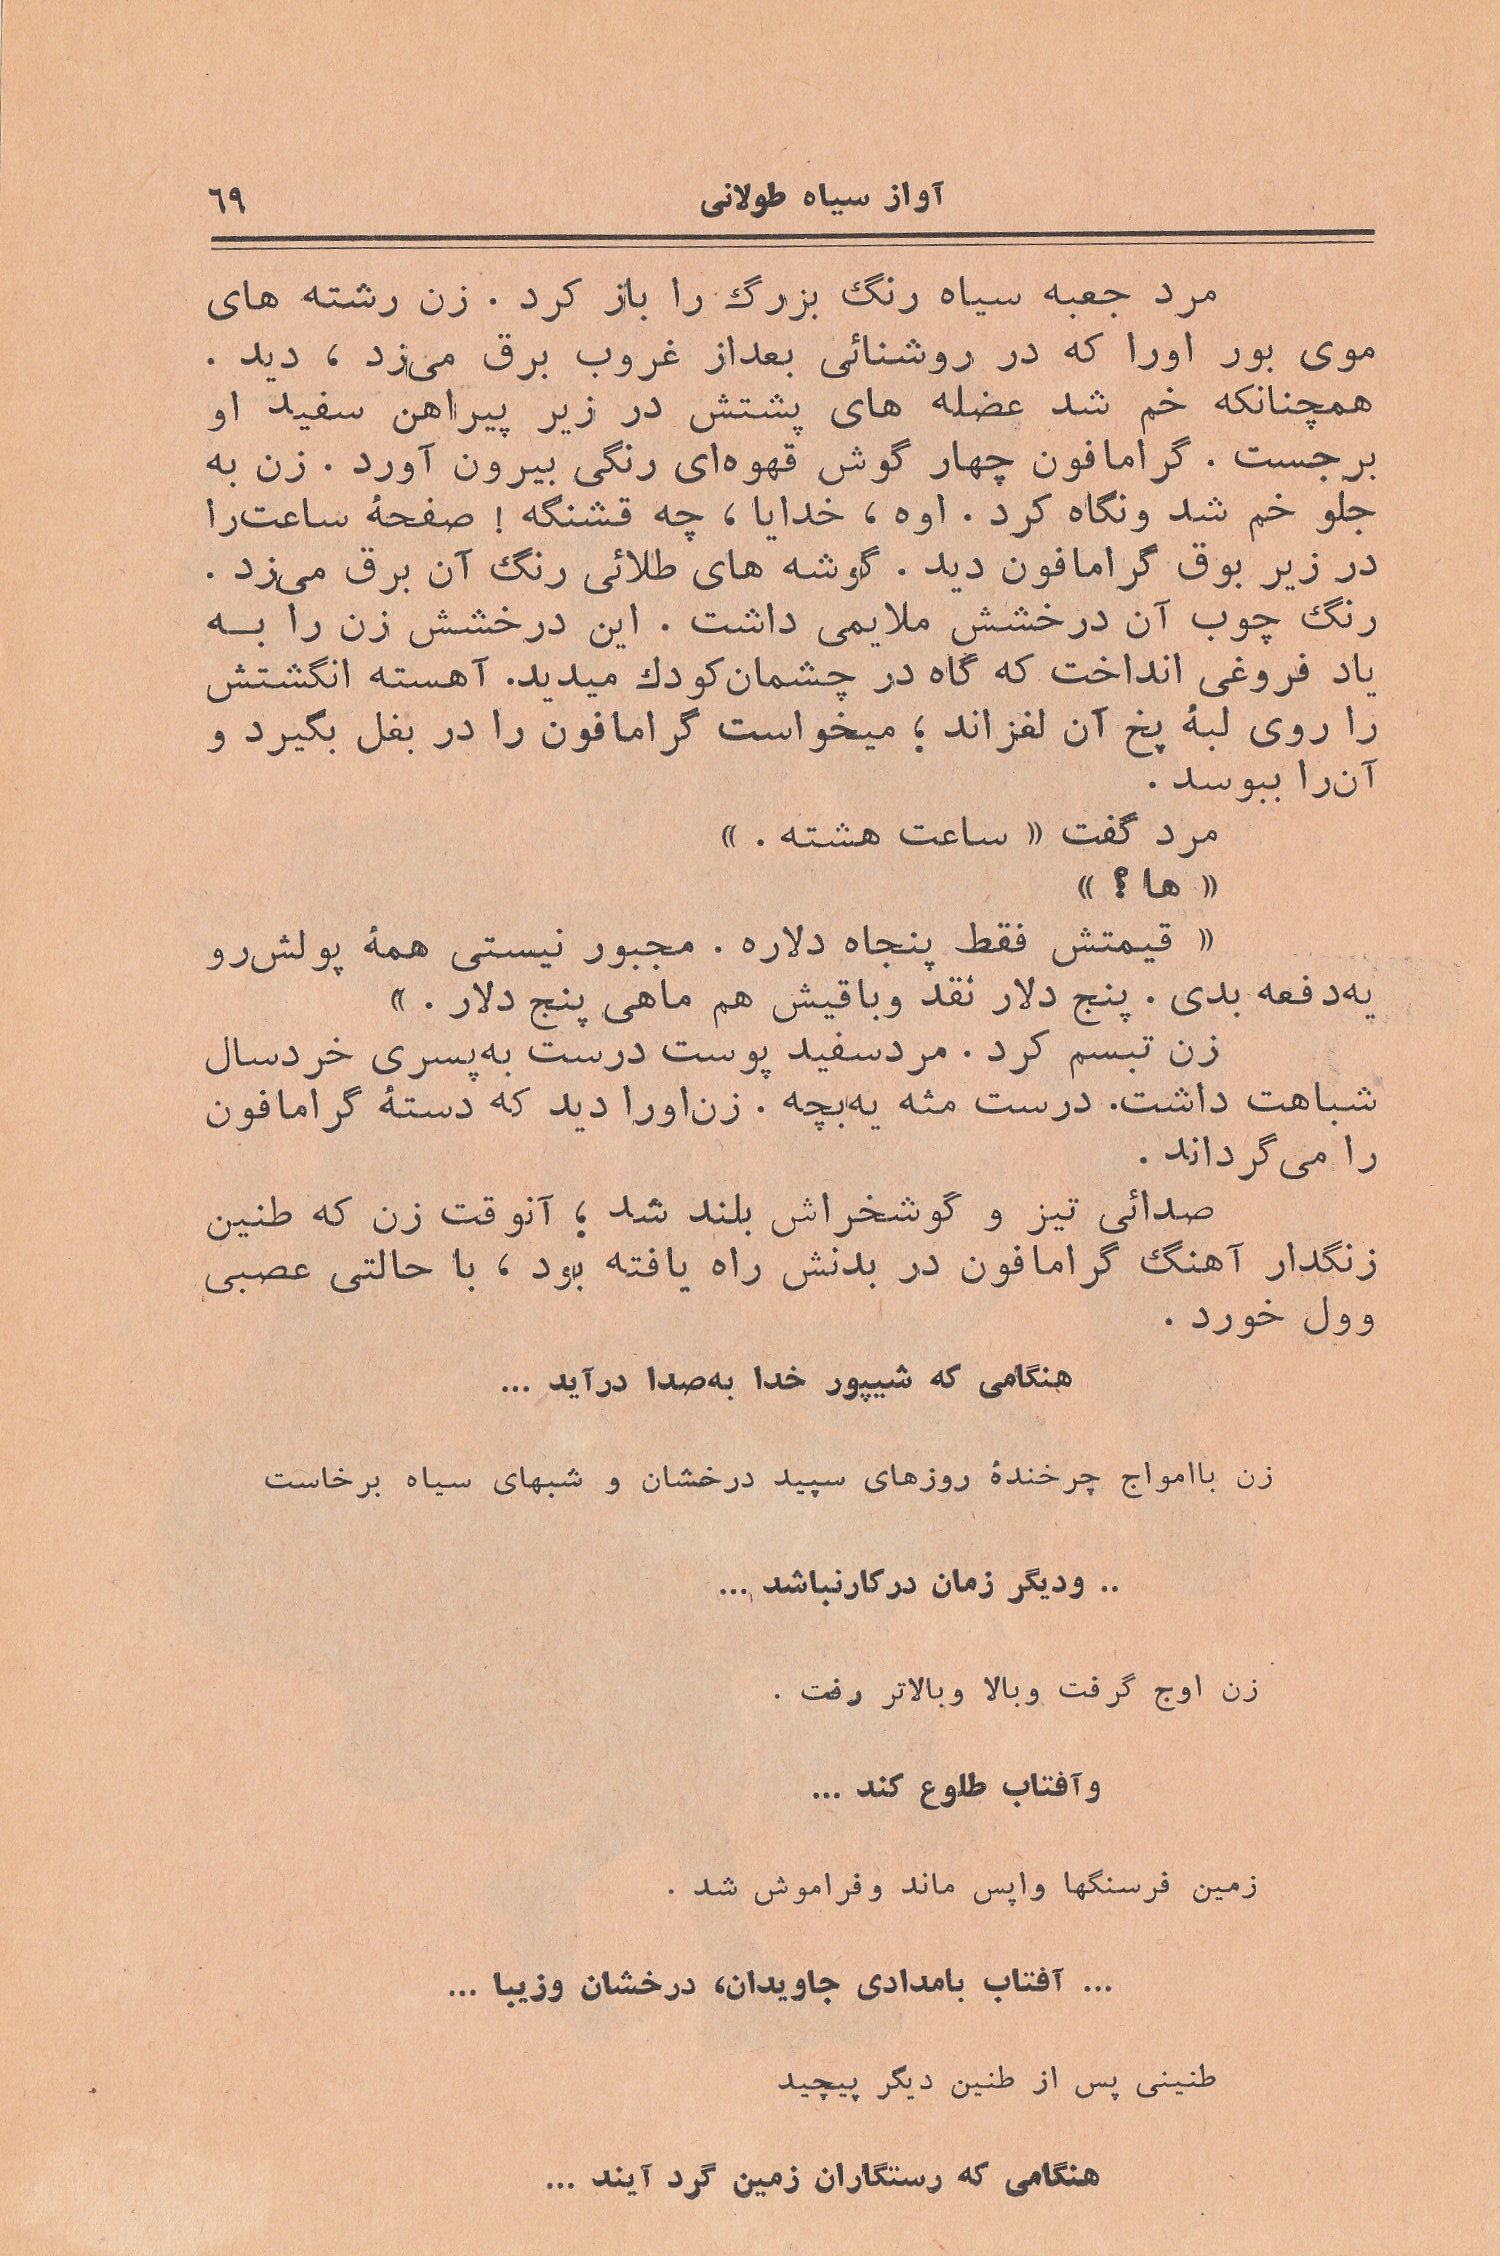 آواز سیاه طولانی ٦٩
مرد جعبه سیاه رنگ بزرگ را باز کرد . زن رشته های
موی بور اورا که در روشنائی بعداز غروب برق می‌زد ، دید .
همچنانکه خم شد عضله های پشتش در زیر پیراهن سفید او
برجست . گرامافون چهار گوش قهوه‌ای رنگی بیرون آورد . زن به
جلو خم شد ونگاه کرد . اوه ، خدایا ، چه قشنگه ! صفحهٔ ساعت‌را
در زیر بوق گرامافون دید . گوشه های طلائی رنگ آن برق می‌زد .
رنگ چوب آن درخشش ملایمی داشت . این درخشش زن را بـه
یاد فروغی انداخت که گاه در چشمان‌کودك میدید. آهسته انگشتش
را روی لبهٔ پخ آن لغزاند ؛ میخواست گرامافون را در بغل بگیرد و
آن‌را ببوسد .
مرد گفت « ساعت هشته . »
« ها ؟ »
« قیمتش فقط پنجاه دلاره . مجبور نیستی همهٔ پولش‌رو
یه‌دفعه بدی . پنج دلار نقد وباقیش هم ماهی پنج دلار . »
زن تبسم کرد . مردسفید پوست درست به‌پسری خردسال
شباهت داشت. درست مثه یه‌بچه . زن‌اورا دید که دستهٔ گرامافون
را می‌گرداند .
صدائی تیز و گوشخراش بلند شد ؛ آنوقت زن که طنین
زنگدار آهنگ گرامافون در بدنش راه یافته بود ، با حالتی عصبی
وول خورد .
هنگامی که شیپور خدا به‌صدا درآید ...
زن باامواج چرخندهٔ روزهای سپید درخشان و شبهای سیاه برخاست
.. ودیگر زمان درکارنباشد ...
زن اوج گرفت وبالا وبالاتر رفت .
وآفتاب طلوع کند ...
زمین فرسنگها واپس ماند وفراموش شد .
... آفتاب بامدادی جاویدان، درخشان وزیبا ...
طنینی پس از طنین دیگر پیچید
هنگامی که رستگاران زمین گرد آیند ...